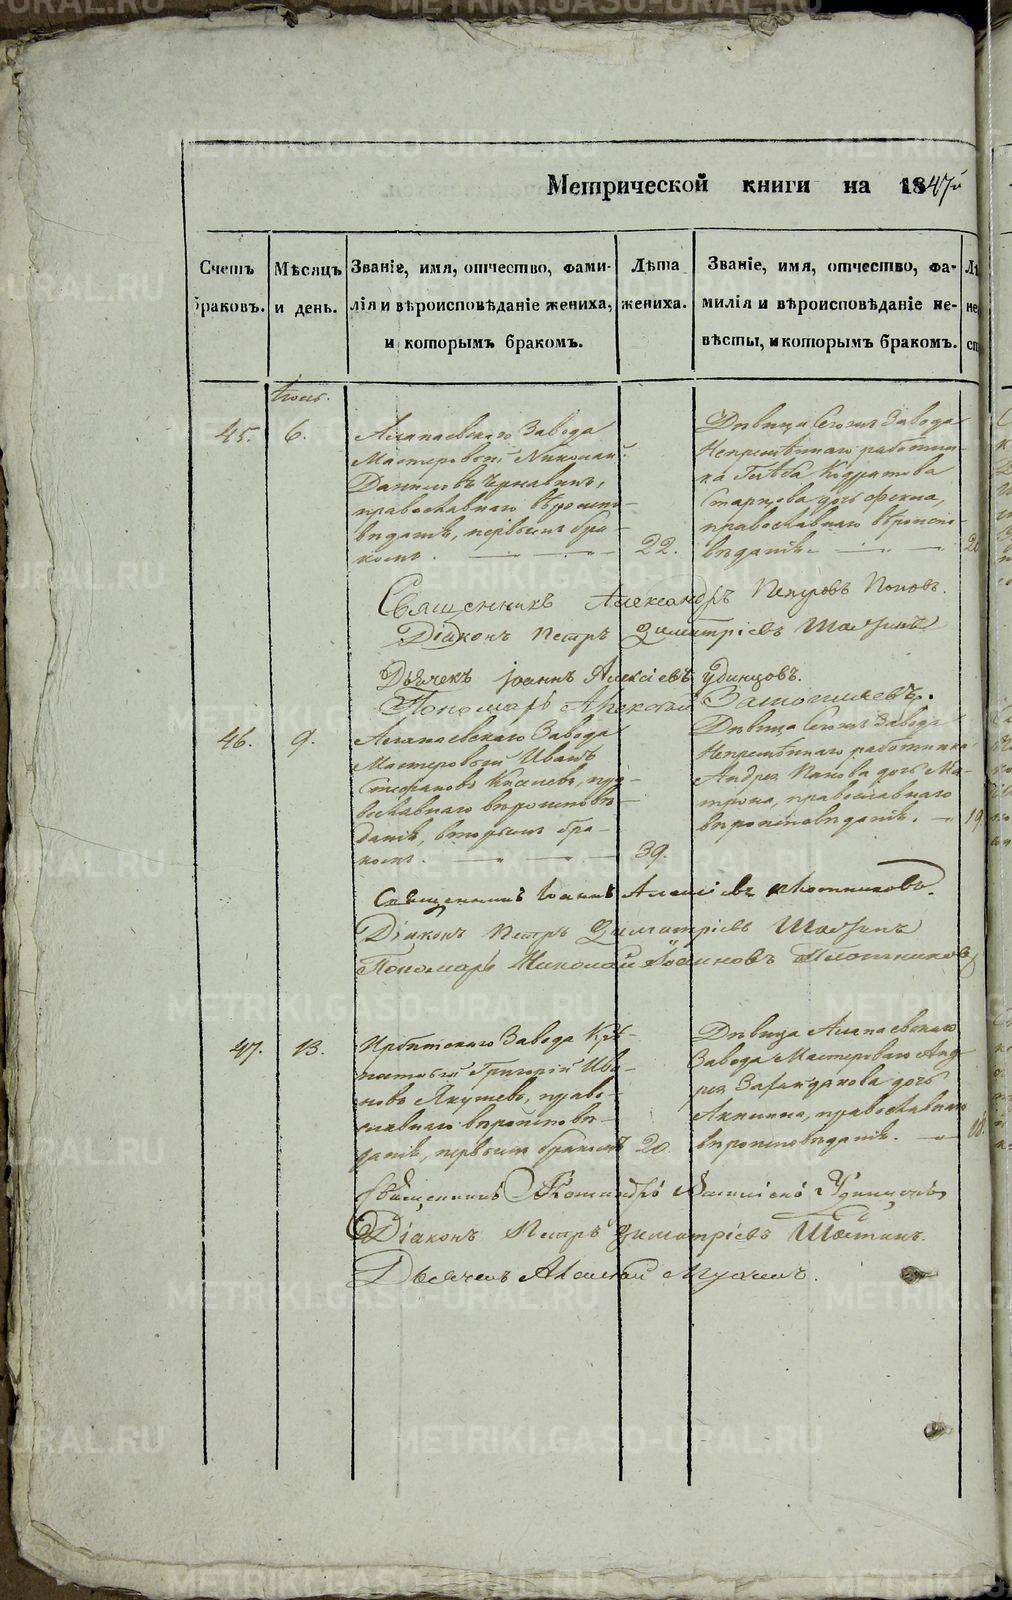 Метрической книги на 1847й
Счетъ браковъ.
Мѣсяцъ и день.
Званіе, имя, отчество, фами-
лія и вѣроисповѣданіе жениха,
и которымъ бракомъ.
Лѣта
жениха.
Званіе, имя, отчество, фа-
милія и вѣроисповѣданіе не-
вѣсты, и которымъ бракомъ.
45.
6.
Алапаевскаго Завода
Мастеровый Николай
Даниловъ Чернавинъ,
православнаго вѣроиспо-
вѣданія, первымъ бра-
комъ.
22.
Дѣвица Сегожъ Завода
Непремѣннаго работни-
ка Глѣба Кодратова
Старцова дочь Фекла,
православнаго вѣроиспо-
вѣданія.
Священникъ Александръ Петровъ Поповъ.
Діаконъ Петръ Димитріевъ
Дьячекъ Іоаннъ Алексіевъ Удинцовъ.
Пономарь
46.
9.
Алапаевскаго Завода
Мастеровый Иванъ
Стефановъ Киселевъ, пра-
вославнаго вѣроисповѣ-
данія, вторымъ бра-
комъ.
39.
Дѣвица Сегожъ Завода
Непремѣннаго работника
Андрея Панова дочь Ма-
трона, православнаго
вѣроисповѣданія.
19
Священникъ Іоаннъ Алексіевъ Плотниковъ.
Діаконъ Петръ Димитріевъ
Пономарь Николай Іоанновъ Плотниковъ
47.
13.
Ирбитскаго Завода
Григорій Ива-
новъ Якушевъ, право-
славнаго вѣроисповѣ-
данія, первымъ бракомъ
20.
Дѣвица Алапаевскаго
Завода Мастероваго Анд-
рея дочь
Акилина, православнаго
вѣроисповѣданія.
18.
Священникъ Удинцовъ
Діаконъ Петръ Димитріевъ
Дьячекъ Алексій
METRIKI.GASO-URAL.RU